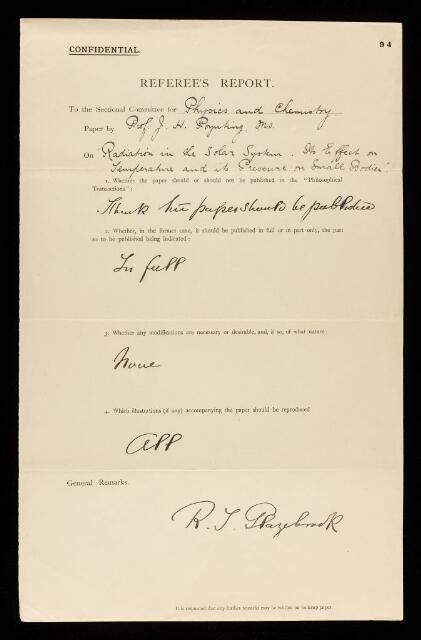 94
CONFIDENTIAL.
REFEREE'S REPORT.
To the Sectional Committee for Physics and Chemistry
Paper by Prof. J. H. Poynting,
On "Radiation in the Solar System. Its Effect on
Temperature and its Pressure on Small Bodies."
1. Whether the paper should or should not be published in the "Philosophical
Transactions":
I think this paper should be published
2. Whether, in the former case, it should be published in full or in part only, the part
so to be published being indicated:
In full
3. Whether any modifications are necessary or desirable, and, if so, of what nature:
None
4. Which illustrations (if any) accompanying the paper should be reproduced
All
General Remarks.
R. T. Glazebrook
It is requested that any further remarks may be written on foolscap paper.